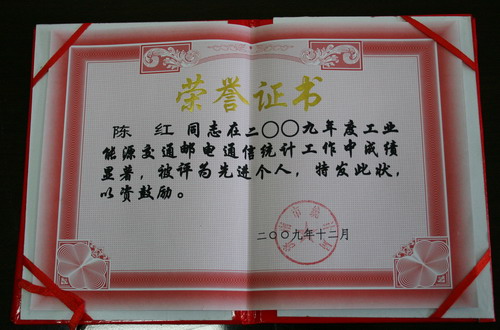 荣誉证书
陈 红 同志在二〇〇九年度工业
能源交通邮电通信统计工作中成绩
显著，被评为先进个人，特发此状，
以资鼓励。
二〇〇九年十二月